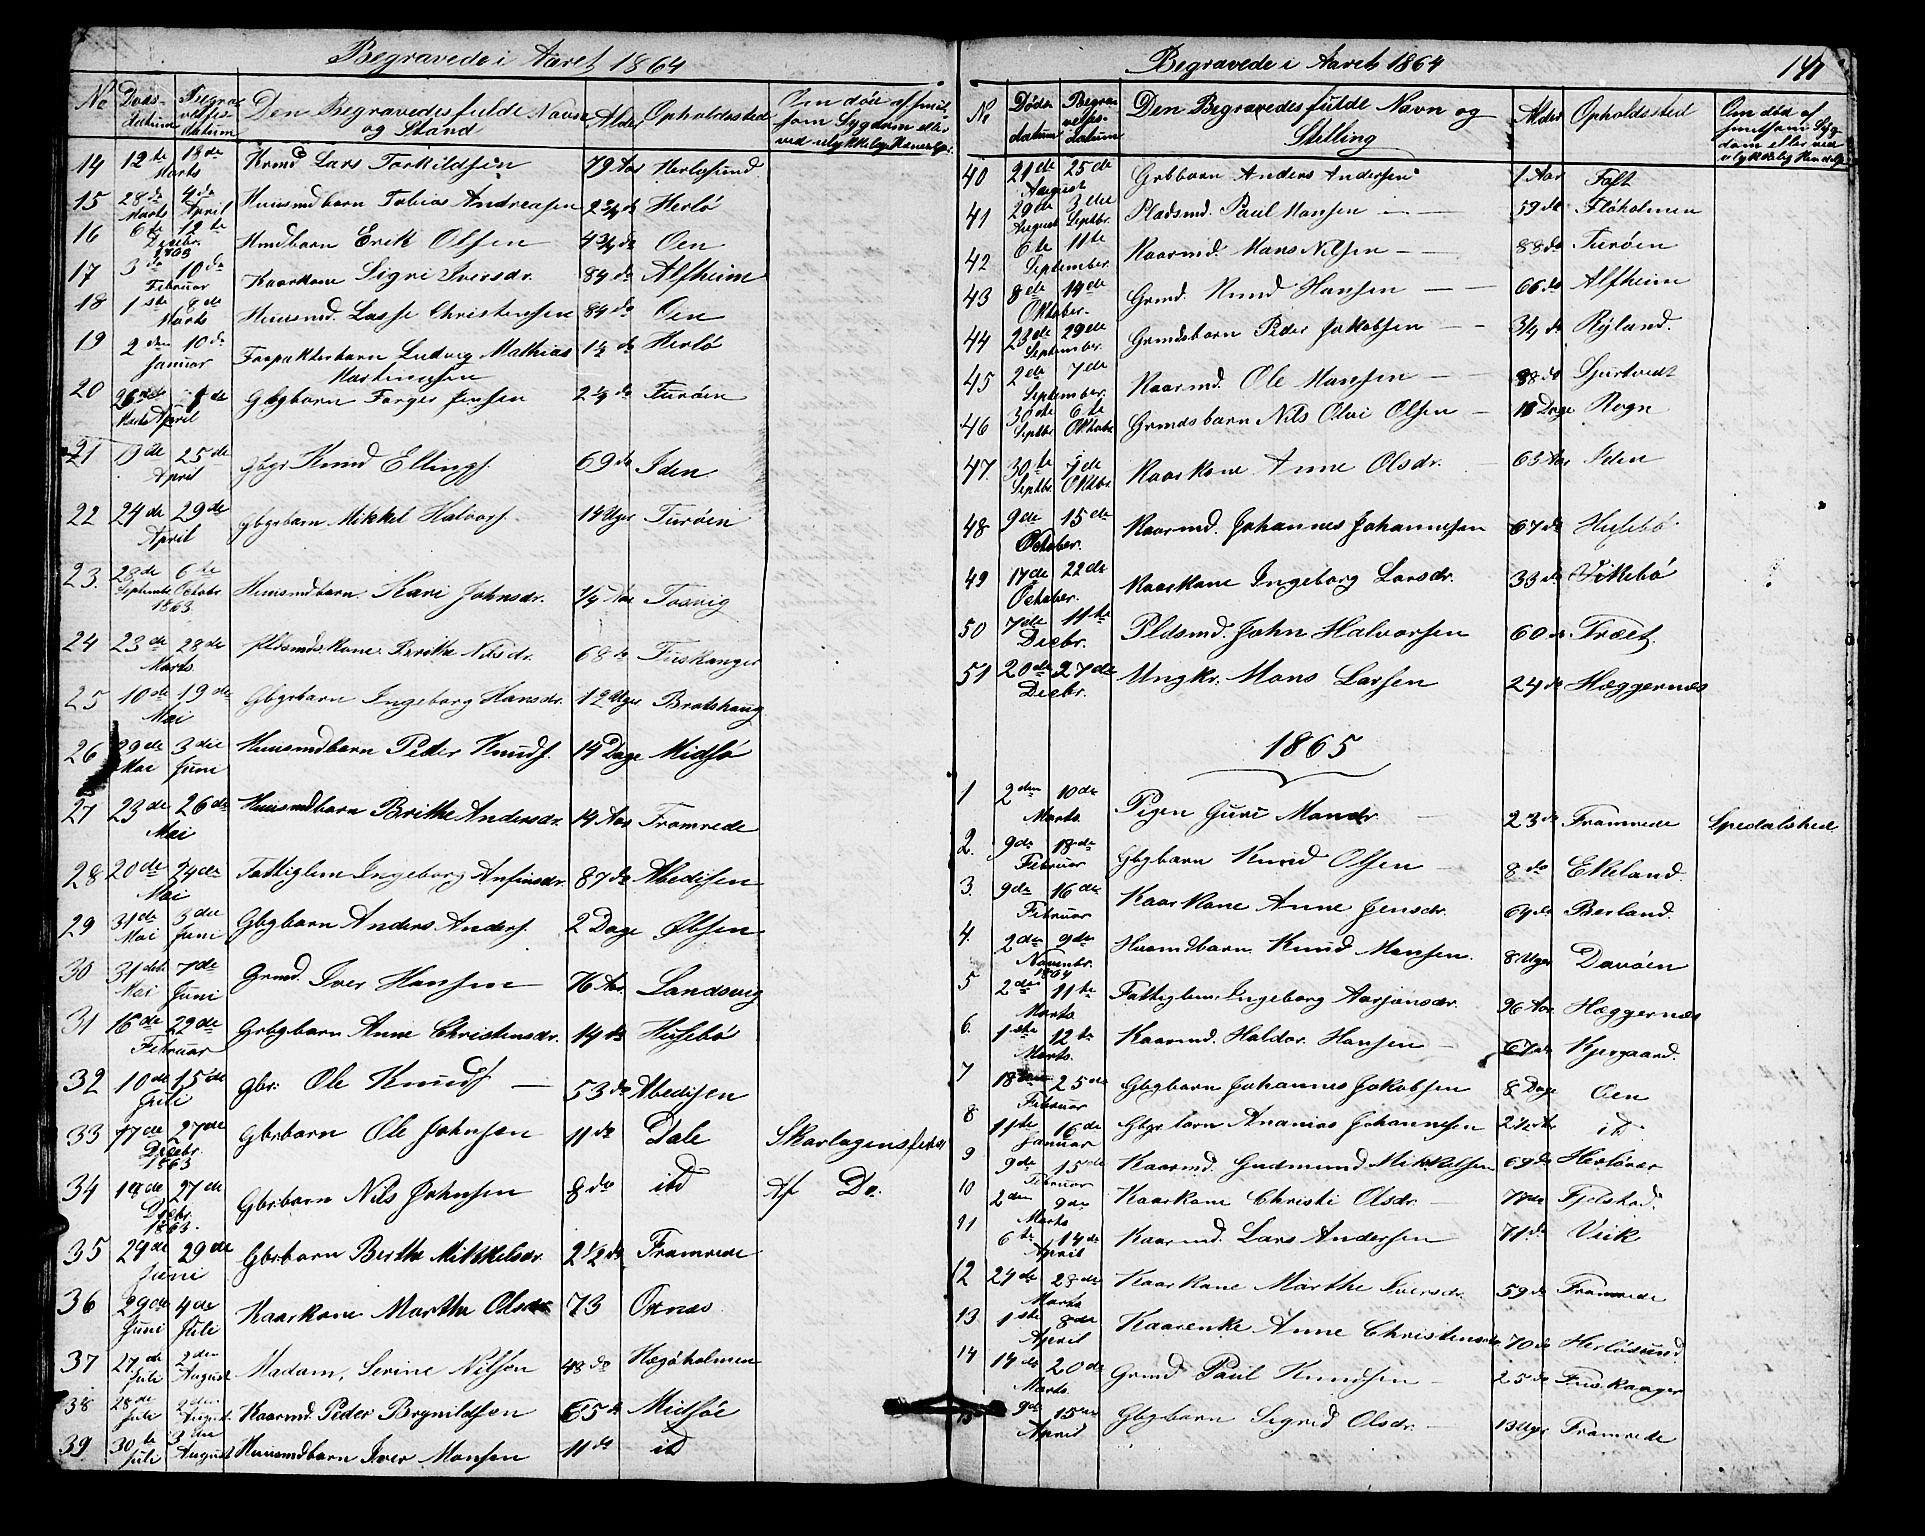 Begravede i Aaret 1864
No Døds-datum Begravelses-datum Den Begravedes fulde Navn og Stand Alder Opholdssted Om død af smitsom Sygdom eller ved ulykkelig Hændelse
14 12te 18de Marts Krmd Lars Torkildsen 79 Aar Herløsund
15 28de Marts 4de April Huusmdbarn Tobias Andreasen 2 3/4 do Herlø
16 6te 12te Decbr. 1863 Hmdbarn Erik Olsen 4 3/4 do Oen
17 3de 10de Februar Kaarkone Sigri Iversdr. 84 do Alfheim
18 1ste 8de Marts Huusmd. Lasse Christensen 84 do Oen
19 2den 10de Januar Forpakterbarn Ludvig Mathias Martinussen 1 1/2 do Herlø
20 26de Marts 1de April Gbgbarn Torges Jensen 2 1/4 do Turøen
21 19de 25de April Gbgr Knud Ellings. 69 do Iden
22 24de 29de April Gbgrbarn Mikkel Halvors. 14 Uger Turøen
23. 28de Septembr 6te Octobr 1863 Huusmdbarn. Kari Johnsdr. 1/4 Aar Tosvig
24 23de 28de Marts Pldsmdskone Brithe Nilsdr. 68 do Fuskanger
25 10de 19de Mai Gbgrbarn Ingeborg Hansdr. 12 Uger Bratshaug
26 29de Mai 3die Juni Huusmdbarn Peder Knuds. 14 Dage Midsø
27 23de 26de Mai Huusmdbarn Brithe Andersdr. 14 Aar Framrede
28 20de 24de Mai Fattiglem Ingeborg Ansinsdr. 87 do Abedisen
29 31de Mai 3die Juni Gbgbarn Anders Anders. 2 Dage Øbsen
30 31de Mai 7de Juni Grmd. Iver Hansen 76 Aar. Landsvig
31 16de 22de Februar Grbgbarn Anne Christensdr. 14 do Husebø
32 10de 15de Juli Gbr. Ole Knuds. 53 do Abedisen
33 17de 27de Decbr. 1863 Gbrbarn Ole Johnsen 11 do Dale Skarlagensfeber
34 19de 27de Decbr. 1863. Gbrbarn Nils Johnsen 8 do itd Af Do.
35 24de 29de Juni Gbrbarn Berthe Mikkelsdr. 2 1/2 do Framrede
36 29de Juni 4de Juli Kaarkone Marthe Olsdr 73 Oxnæs
37 27de Juli 2den August Madam, Serine Nilson 48 do Hægøholmen
38 28de Juli 2den August Kaarmd. Peder Brynildsen 65 do Midsøe
39 30te Juli 3die August Huusmdbarn Iver Monsen 11 do itd
Begravede i Aaret 1864 141
No Døds-datum Begravelses-datum Den Begravedes fulde Navn og Stilling Alder Opholdssted Om død af smitsom Sygdom eller ved ulykkelig Hændelse
40 21de 25de August Grbbarn Anders Andersen 1 Aar Toft
41 29de August 3die Septbr. Pladsmd. Paul Hansen 59 do Fløholmen
42 6te 11te September. Kaarmd. Hans Nilsen 88 do Turøen
43 8de 14de Oktober. Grmd. Knud Hansen 66 do Alfheim
44 23de 29de September. Grmdsbarn Peder Jakobsen 3/4 do Ryland.
45 2de 7de September. Kaarmd. Ole Hansen 88 do Sjurtvedt
46 30de Septbr 6te Oktober Grmdsbarn Nils Olai Olsen 18 Dage Rogn
47. 30te Septbr. 7de Oktbr. Kaarkone Anne Olsdr. 63 Aar Iden
48 9de 15de October. Kaarmd. Johannes Johannesen 67 do Husebø
49 17de 22de October. Kaarkone Ingeborg Larsdr. 33 do Vikebø
50 7de 11te Decbr. Pldsmd. John Halvorsen 60 do Træet.
51 20de 27de Decbr. Ungkr. Mons Larsen 24 do Hæggernæs
1865
1 2den 10de Marts Pigen Guri Monsdr. 23 do Framrede Spedalshed
2. 9de 18de Februar Gbgbarn Knud Olsen 8 do Ekeland.
3. 9de 16de Februar Kaarkone Anne Jensdr. 64 do Berland.
4. 2den 9de Novembr. 1864 Huusmdbarn. Knud Monsen. 8 Uger Davøen
5 2den 11te Marts. Fattiglem. Ingeborg Aasjonsdr. 96 Aar Hæggernæs
6. 1ste 12te Marts. Kaarmd. Haldor Hansen 67 do Kjergaard.
7 18de 25de Februar Gbgbarn Johannes Jakobsen 8 Dage Oen
8 11te 16de Januar Gbgrbarn Ananias Johannesen 2 1/2 Aar itd
9 9de 15de Februar Kaarmd. Gudmund Mikkelsen 69 do Herløvær
10 2den 9de Marts Kaarkone Christi Olsdr. 77 do Fjelstad.
11 6te 14de April Kaarmd. Lars Andersen 71 do Viik
12 24de 28de Marts Kaarkone Marthe Iversdr. 59 do Framrede
13. 1ste 8de April Kaarenke Anne Christensdr 70 do Herløsund.
14 14de 20de Marts. Grmd Paul Knudsen 25 do Fuskanger
15 9de 15de April Gbgbarn Sigrid Olsdr. 13 Uger Framrede